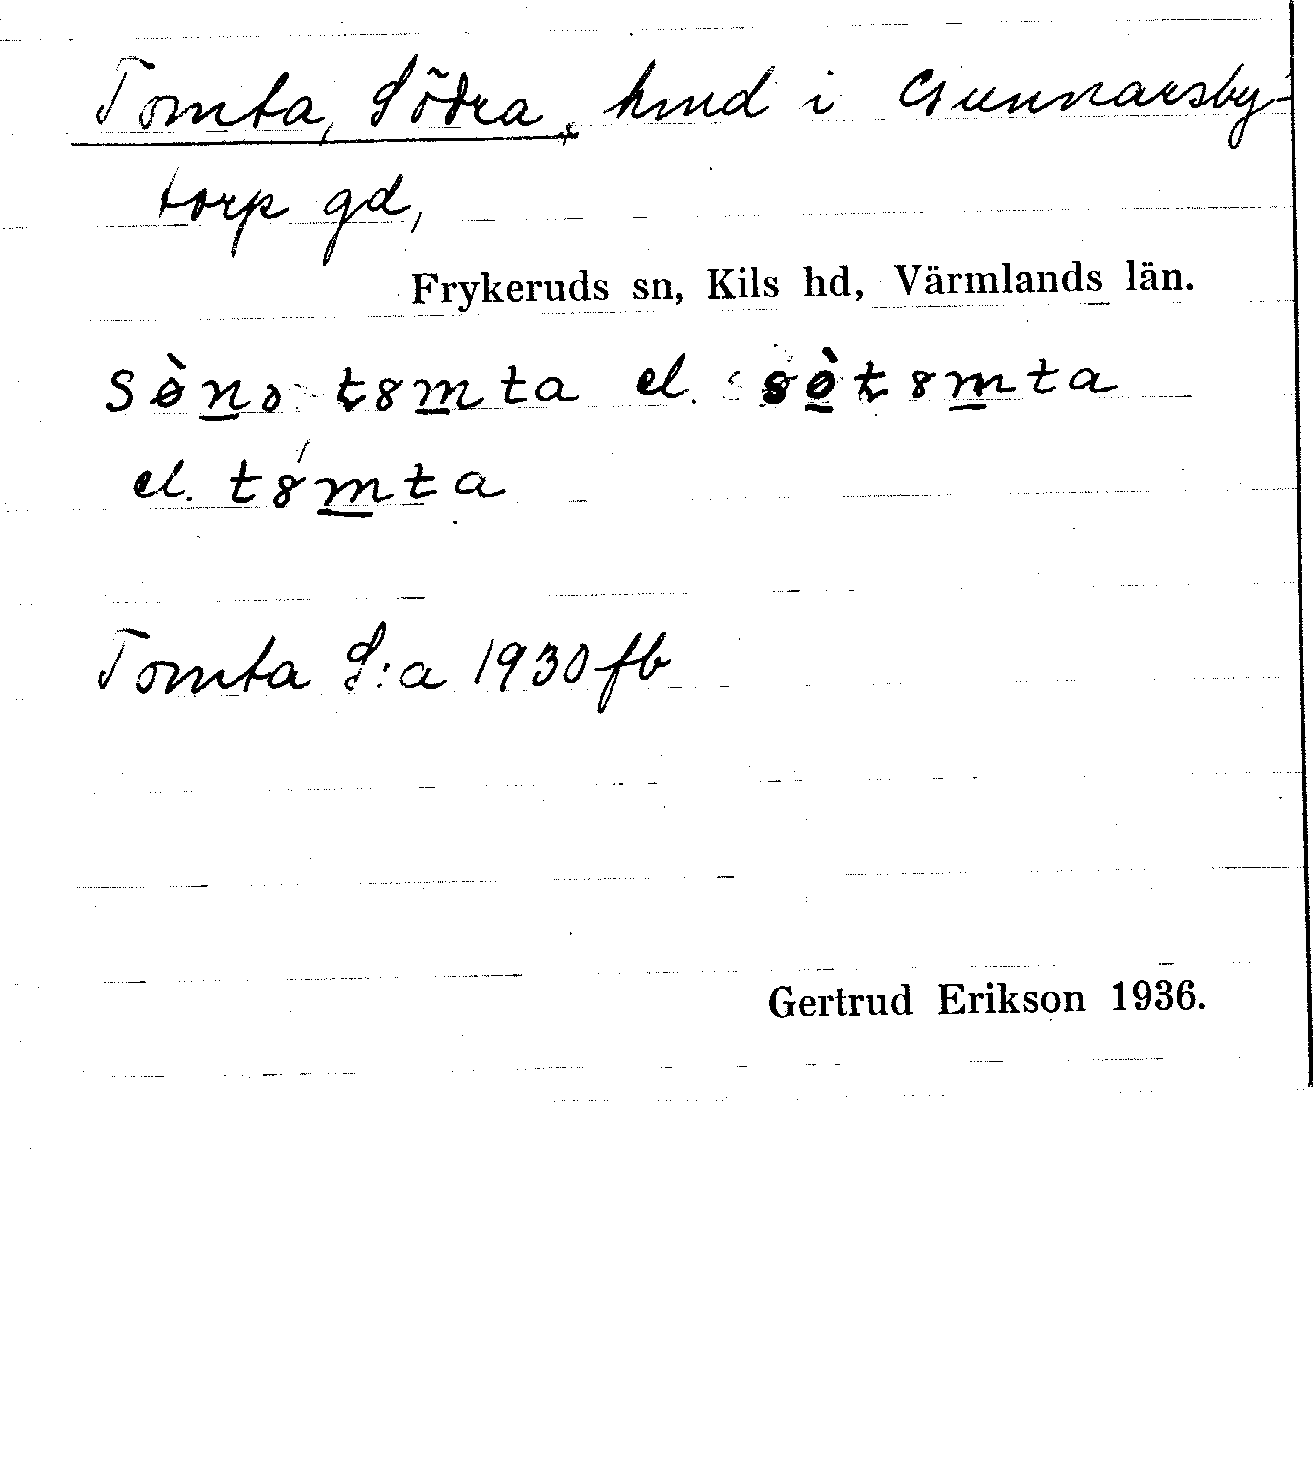 Tomta, Södra, hmd i Gunnarsby-
torp gd,
Frykeruds sn, Kils hd, Värmlands län.
sø̀nɔ tȣmta el. sø̀tȣmta
el. tȣ́mta
Tomta S:a 1930 fb
Gertrud Erikson 1936.